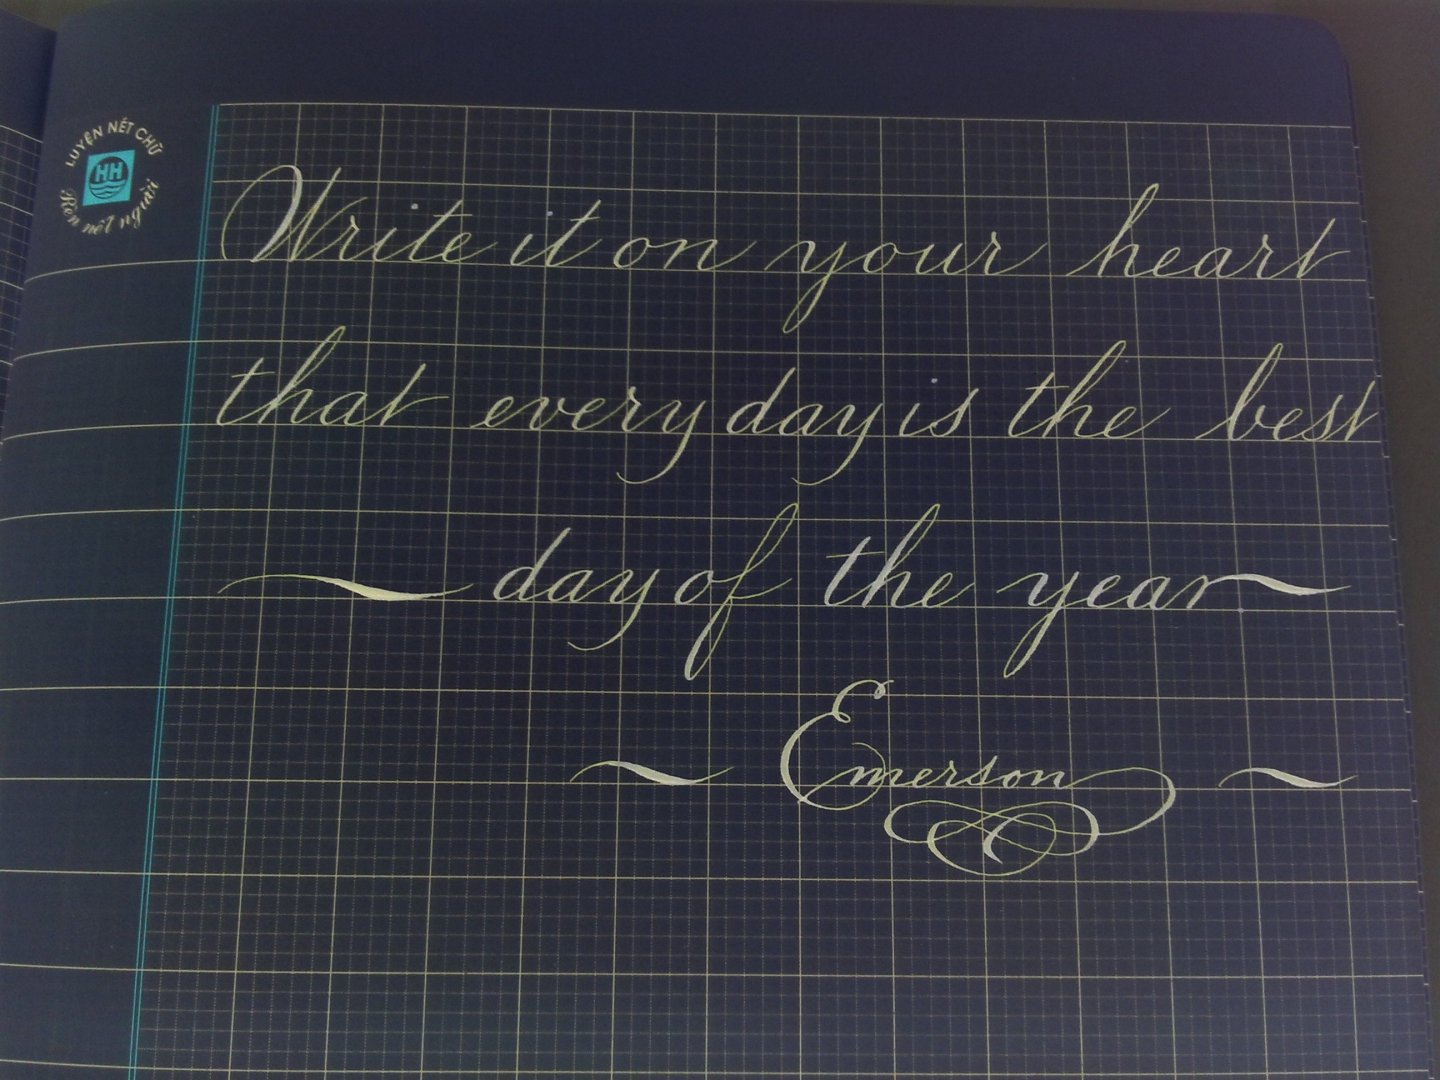 LUYỆN NÉT CHỮ
HH
Rèn nết người
Write it on your heart
that every day is the best
day of the year
Emerson